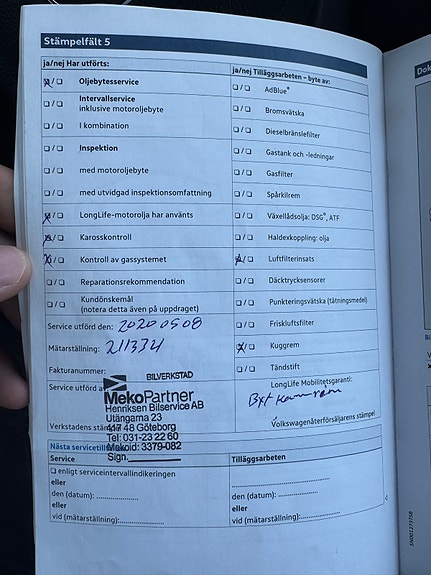 Stämpelfält 5
ja/nej Har utförts:
☒/☐ Oljebytesservice
☐/☐ Intervallservice
inklusive motoroljebyte
☐/☐ I kombination
☐/☐ Inspektion
☐/☐ med motoroljebyte
☐/☐ med utvidgad inspektionsomfattning
☒/☐ LongLife-motorolja har använts
☒/☐ Karosskontroll
☒/☐ Kontroll av gassystemet
☐/☐ Reparationsrekommendation
☐/☐ Kundönskemål
(notera detta även på uppdraget)
ja/nej Tilläggsarbeten – byte av:
☐/☐ AdBlue®
☐/☐ Bromsvätska
☐/☐ Dieselbränslefilter
☐/☐ Gastank och -ledningar
☐/☐ Gasfilter
☐/☐ Spårkilrem
☐/☐ Växellådsolja: DSG®, ATF
☐/☐ Haldexkoppling: olja
☒/☐ Luftfilterinsats
☐/☐ Däcktrycksensorer
☐/☐ Punkteringsvätska (tätningsmedel)
☐/☐ Friskluftsfilter
☒/☐ Kuggrem
☐/☐ Tändstift
Service utförd den: 20200508
Mätarställning: 211334
Fakturanummer:
Service utförd av
Verkstadens stämpel
BILVERKSTAD
MekoPartner
Henriksen Bilservice AB
Utängarna 23
417 48 Göteborg
Tel: 031-23 22 60
Mekoid: 3379-082
Sign.
LongLife Mobilitetsgaranti:
Byt kamrem
Volkswagenåterförsäljarens stämpel
Nästa servicetillfälle
Service
☐ enligt serviceintervallindikeringen
eller
den (datum):
eller
vid (mätarställning):
Tilläggsarbeten
eller
den (datum):
eller
vid (mätarställning):
5N0012731SB
Dok